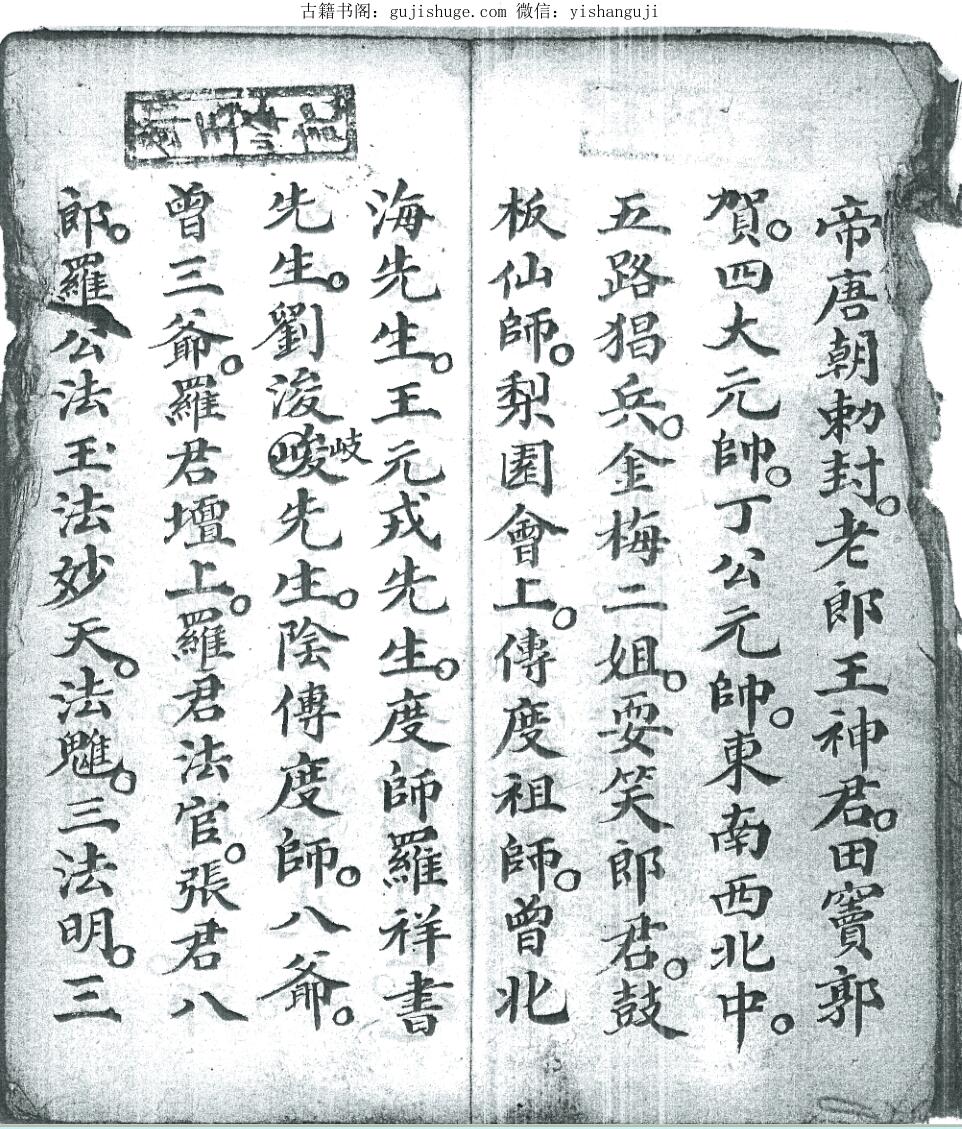 古籍书阁：gujishuge.com 微信：yishanguji
帝唐朝勅封。老郎王神君。田竇郭
賀。四大元帥。丁公元帥。東南西北中。
五路猖兵。金梅二姐。耍笑郎君。鼓
板仙師。梨園會上。傳度祖師。曾北
海先生。王元戎先生。度師羅祥書
先生。劉浚岐先生。陰傳度師。八爺。
曾三爺。羅君壇上。羅君法官。張君八
郎。羅公法玉法妙天。法魋。三法明。三